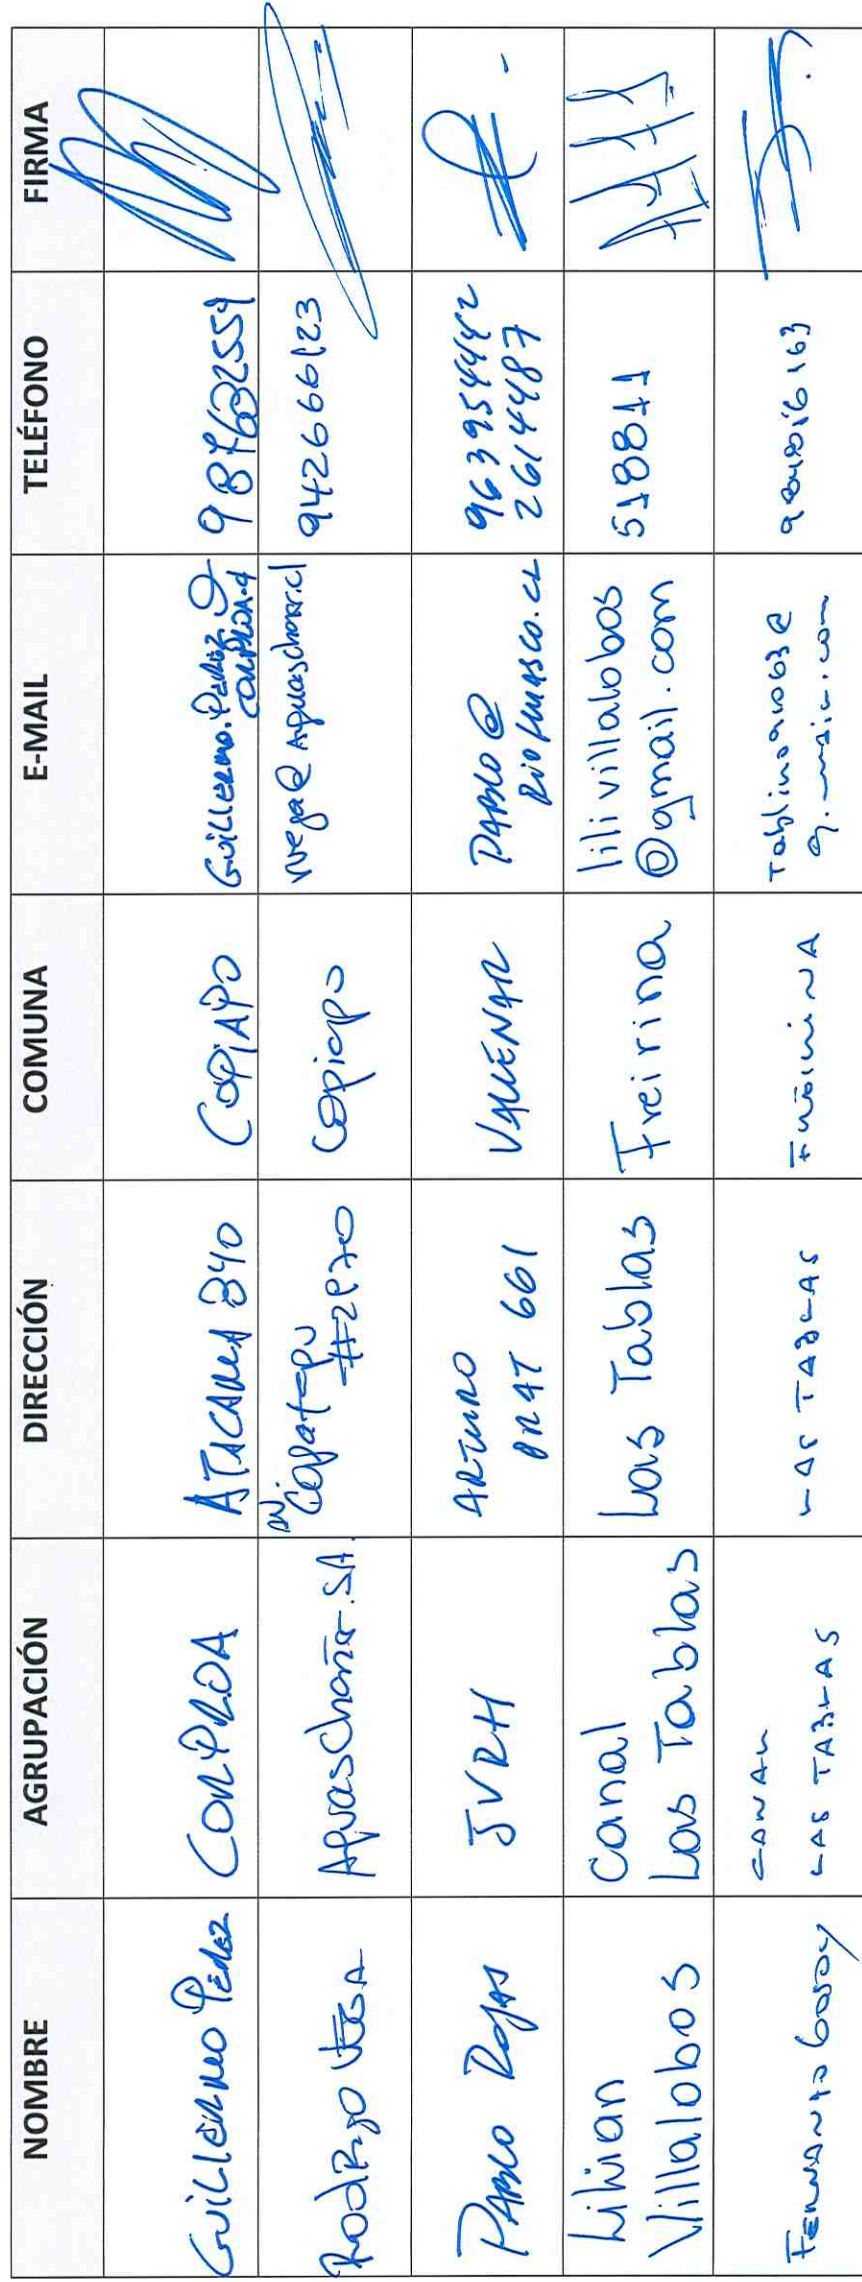 NOMBRE AGRUPACIÓN DIRECCIÓN COMUNA E-MAIL TELÉFONO FIRMA
Guillermo Pérez CORPROA ATACAMA 840 COPIAPO Guillermo.Perez@
corproa.cl
Rodrigo Vega Aguas Chañar.SA. Copiapo
Copayapu
#2970
rvega@aguaschanar.cl 942666123
PABLO Rojas JVRH ARTURO
PRAT 661
VALLENAR PABLO@
RIOHUASCO.CL
963954442
2614487
Lilian
Villalobos
Canal
Las Tablas
Las Tablas Freirina lilivillalobos
@gmail.com
518811
Fernando Godoy CANAL
LAS TABLAS
LAS TABLAS Freirina